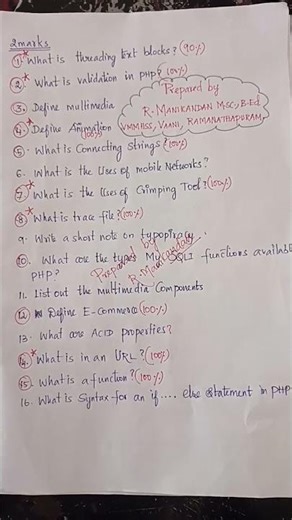 2marks
1.* What is threading text blocks? (90%)
2.* What is validation in PHP? (100%)
3. Define multimedia
Prepared by
R. MANIKANDAN M.Sc., B.Ed
VMMHSS, VAANI, RAMANATHAPURAM.
4.* Define Animation (100%)
5. What is Connecting Strings? (100%)
6. What is the Uses of mobile Networks?
7.* What is the Uses of Crimping Tool? (100%)
8.* What is trace file? (100%)
9. Write a short note on typopiracy
Prepared by
R. Manikandan
10. What are the types MySQLI functions available
PHP?
11. List out the multimedia Components
12. Define E-commerce (100%)
13. What are ACID properties?
14.* What is in an URL? (100%)
15. What is a function? (100%)
16. What is Syntax for an if .... else statement in PHP